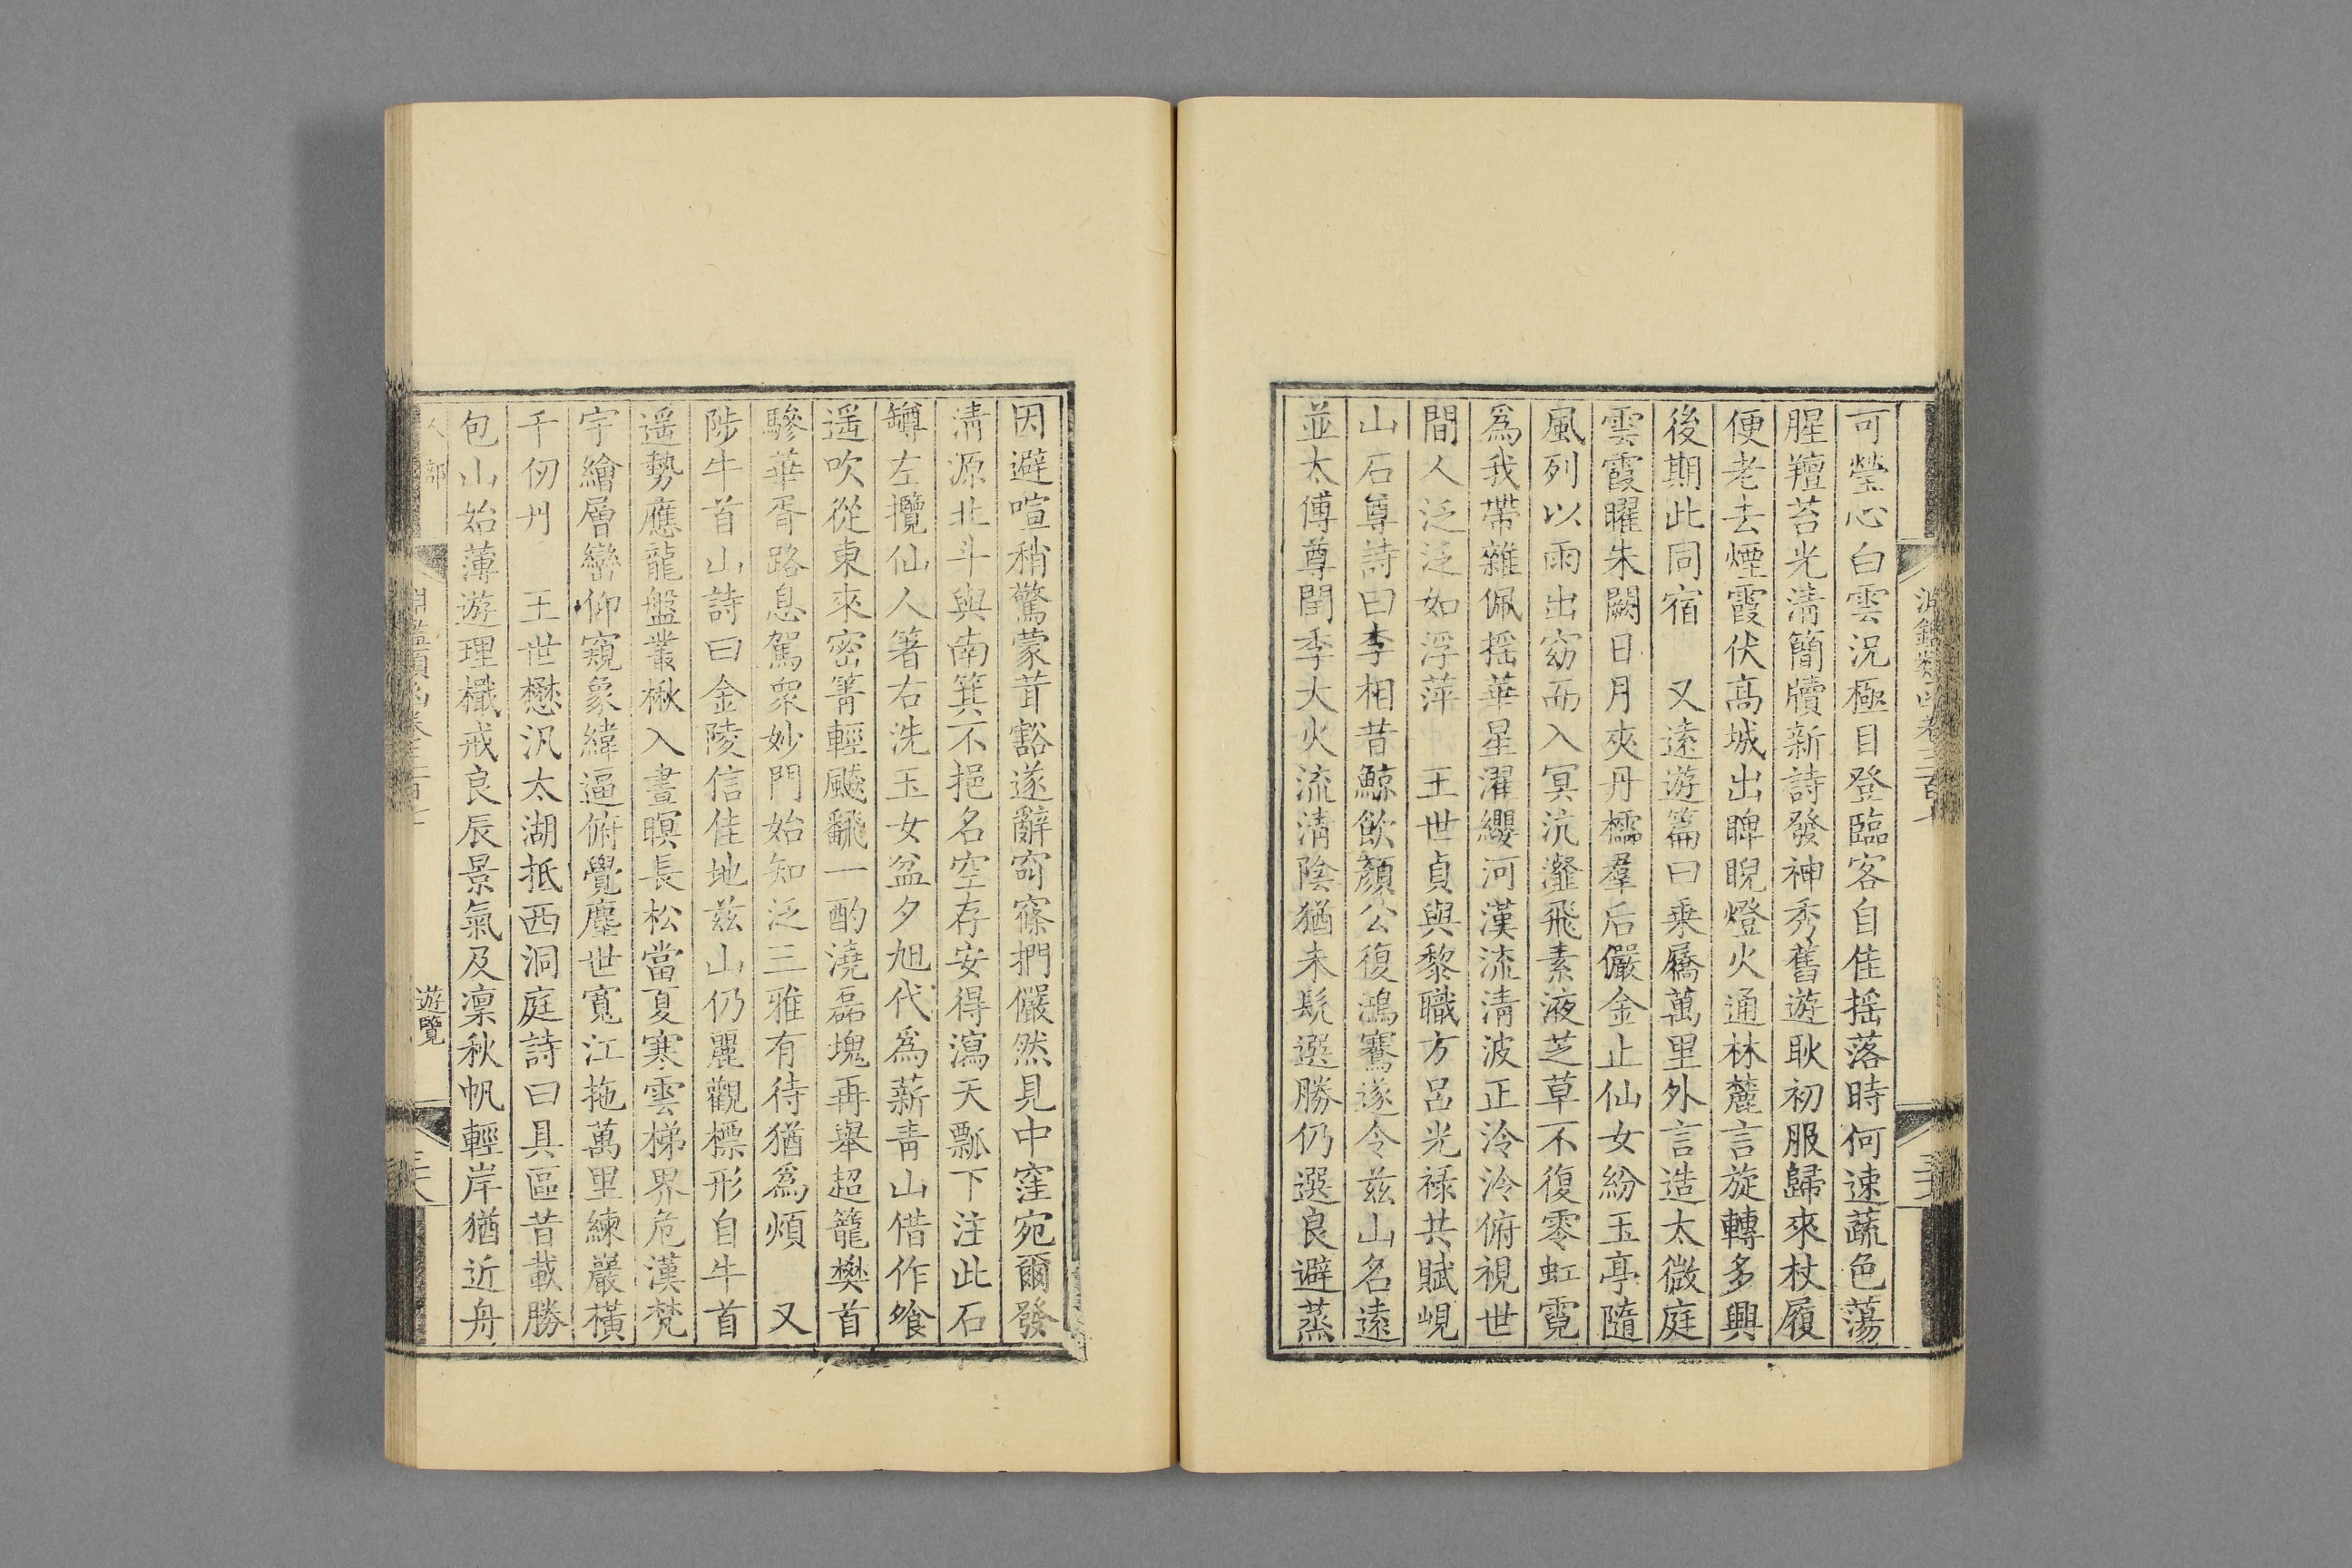 可瑩心白雲況極目登臨客自佳摇落時何速蔬色蕩
腥羶苔光清簡牘新詩發神秀舊遊耿初服歸來杖履
便老去煙霞伏高城出睥睨燈火通林麓言旋轉多興
後期此同宿　又遠遊篇曰乘屩萬里外言造太微庭
雲霞曜朱闕日月夾丹櫺羣后儼金止仙女紛玉亭隨
風列以雨出窈而入冥沆瀣飛素液芝草不復零虹霓
爲我帶雜佩摇華星濯纓河漢流清波正泠泠俯視世
間人泛泛如浮萍　王世貞與黎職方呂光祿共賦峴
山石尊詩曰李相昔鯨飲顏公復鴻騫遂令茲山名遠
並太傅尊聞季大火流清陰猶未髡選勝仍選良避蒸
因避喧稍驚蒙茸豁遂辭窅窱捫儼然見中窪宛爾發
清源北斗與南箕不挹名空存安得瀉天瓢下注此石
罇左攬仙人箸右洗玉女盆夕旭代爲薪青山借作飧
遥吹從東來密箐輕颷翻一酌澆磊塊再舉超籠樊首
驂華胥路息駕衆妙門始知泛三雅有待猶爲煩　又
陟牛首山詩曰金陵信佳地茲山仍麗觀標形自牛首
遥勢應龍盤叢楸入晝暝長松當夏寒雲梯界危漢梵
宇繪層巒仰窺象緯逼俯覺塵世寬江拖萬里練巖橫
千仞丹　王世懋汎太湖抵西洞庭詩曰具區昔載勝
包山始薄遊理檝戒良辰景氣及凜秋帆輕岸猶近舟
人部
遊覽